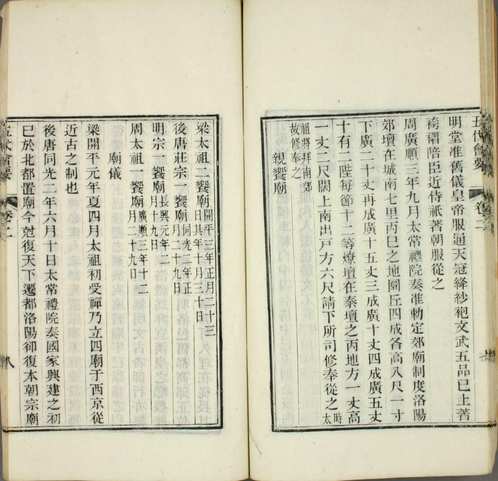 五代會要 卷二
明堂准舊儀皇帝服通天冠絳紗袍文武五品已上著
袴褶陪臣近侍袛著朝服從之
周廣順三年九月太常禮院奏准勅定郊廟制度洛陽
郊壇在城南七里丙巳之地圜丘四成各高八尺一寸
下廣二十丈再成廣十五丈三成廣十丈四成廣五丈
十有二陛每節十二等燎壇在泰壇之丙地方一丈高
一丈二尺闊上南出戶方六尺請下所司修奉從之時太
祖將拜南郊
故修奉之
親饗廟
梁太祖二饗廟開平三年正月二十三
日其年十月三十日
後唐莊宗一饗廟同光二年正
月二十九日
明宗一饗廟長興元年二
月十九日
周太祖一饗廟廣順三年十二
月二十九日
廟儀
梁開平元年夏四月太祖初受禪乃立四廟于西京從
近古之制也
後唐同光二年六月十日太常禮院奏國家興建之初
已於北都置廟今尅復天下遷都洛陽卻復本朝宗廟
五代會要 卷二 八